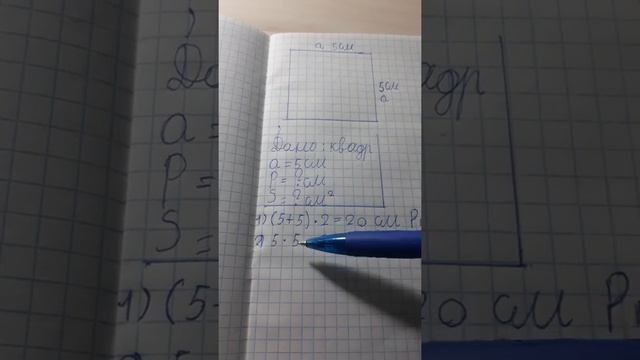 a 5см
5см
a
Дано: квадр
a = 5 см
P = ? см
S = ? см²
1) (5+5) · 2 = 20 см P
2) 5 · 5